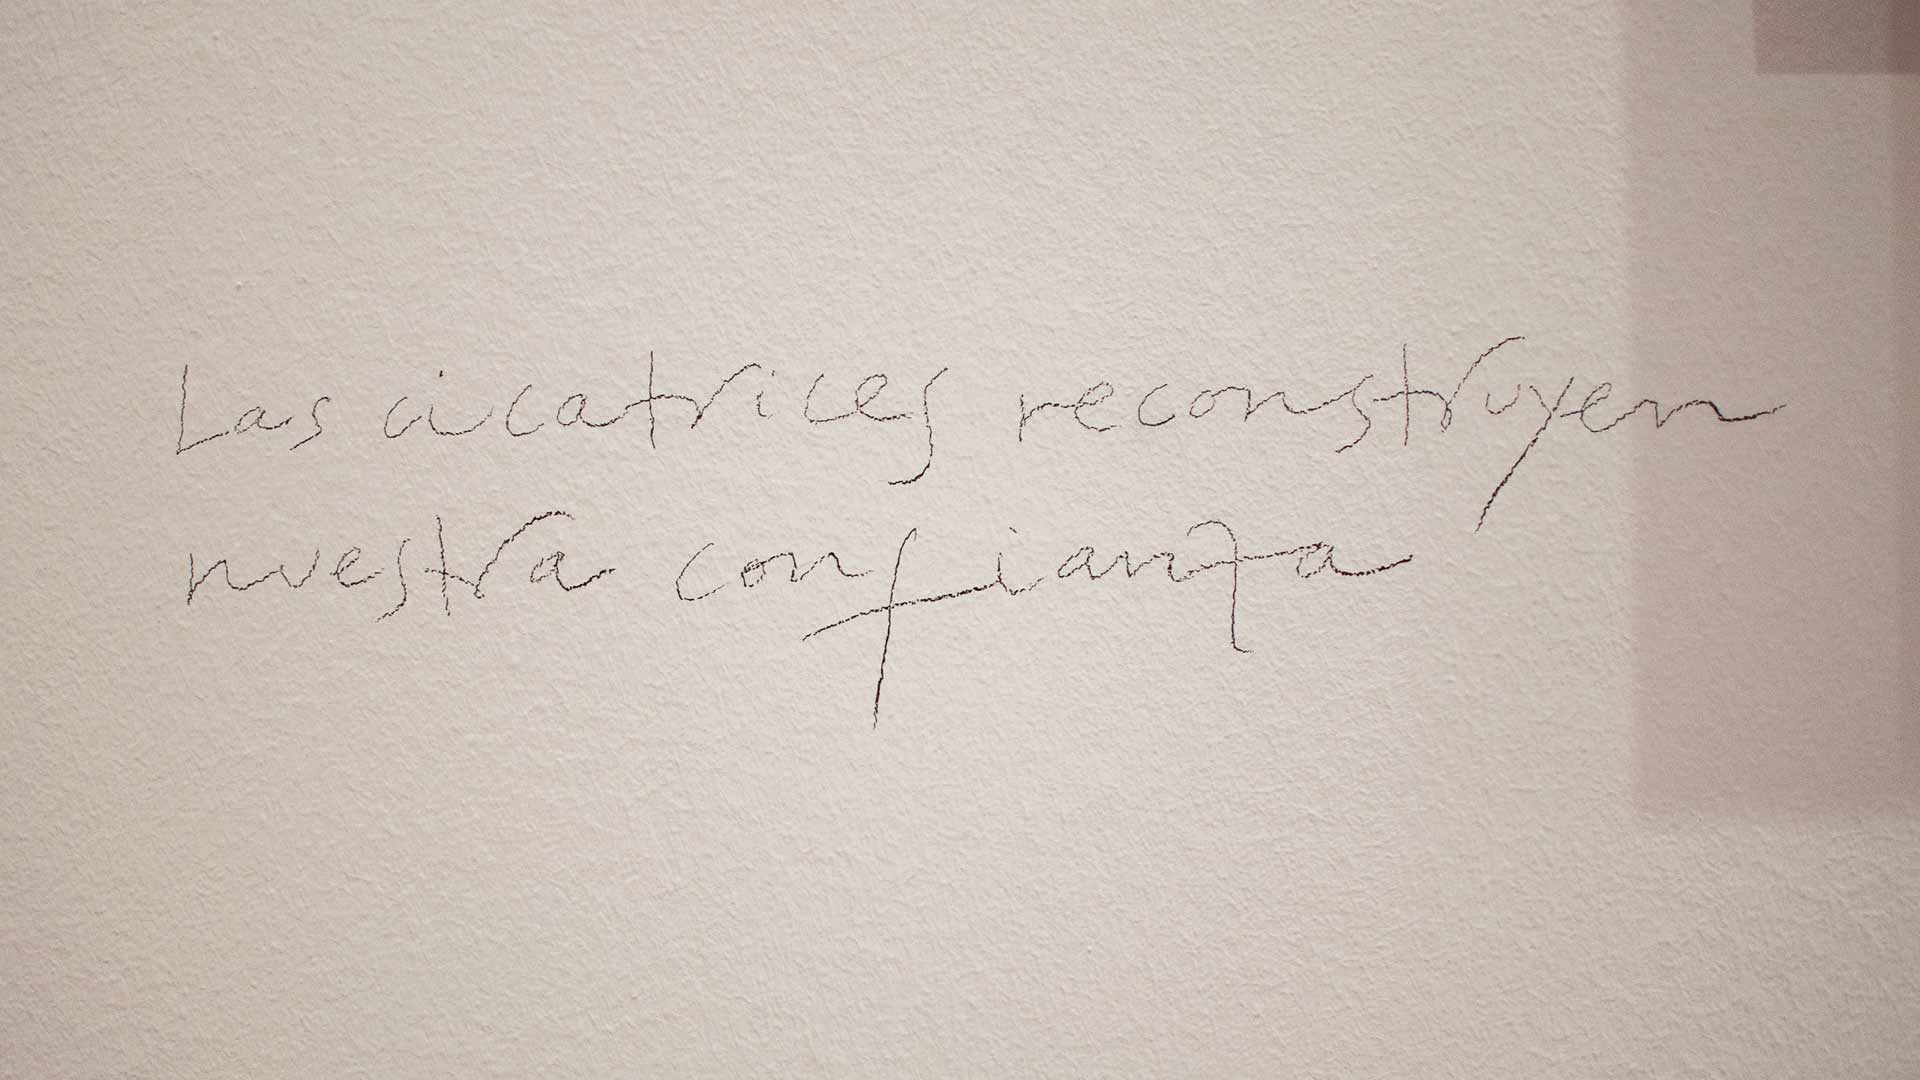 Las cicatrices reconstruyen
nuestra confianza